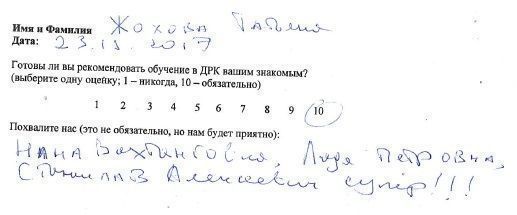 Имя и Фамилия Жохова Татьяна
Дата: 23.12.2017
Готовы ли вы рекомендовать обучение в ДРК вашим знакомым?
(выберите одну оценку; 1 – никогда, 10 – обязательно)
1 2 3 4 5 6 7 8 9 10
Похвалите нас (это не обязательно, но нам будет приятно):
Нана Вахтанговна, Лидя Петровна,
Станислав Алексеевич супер!!!